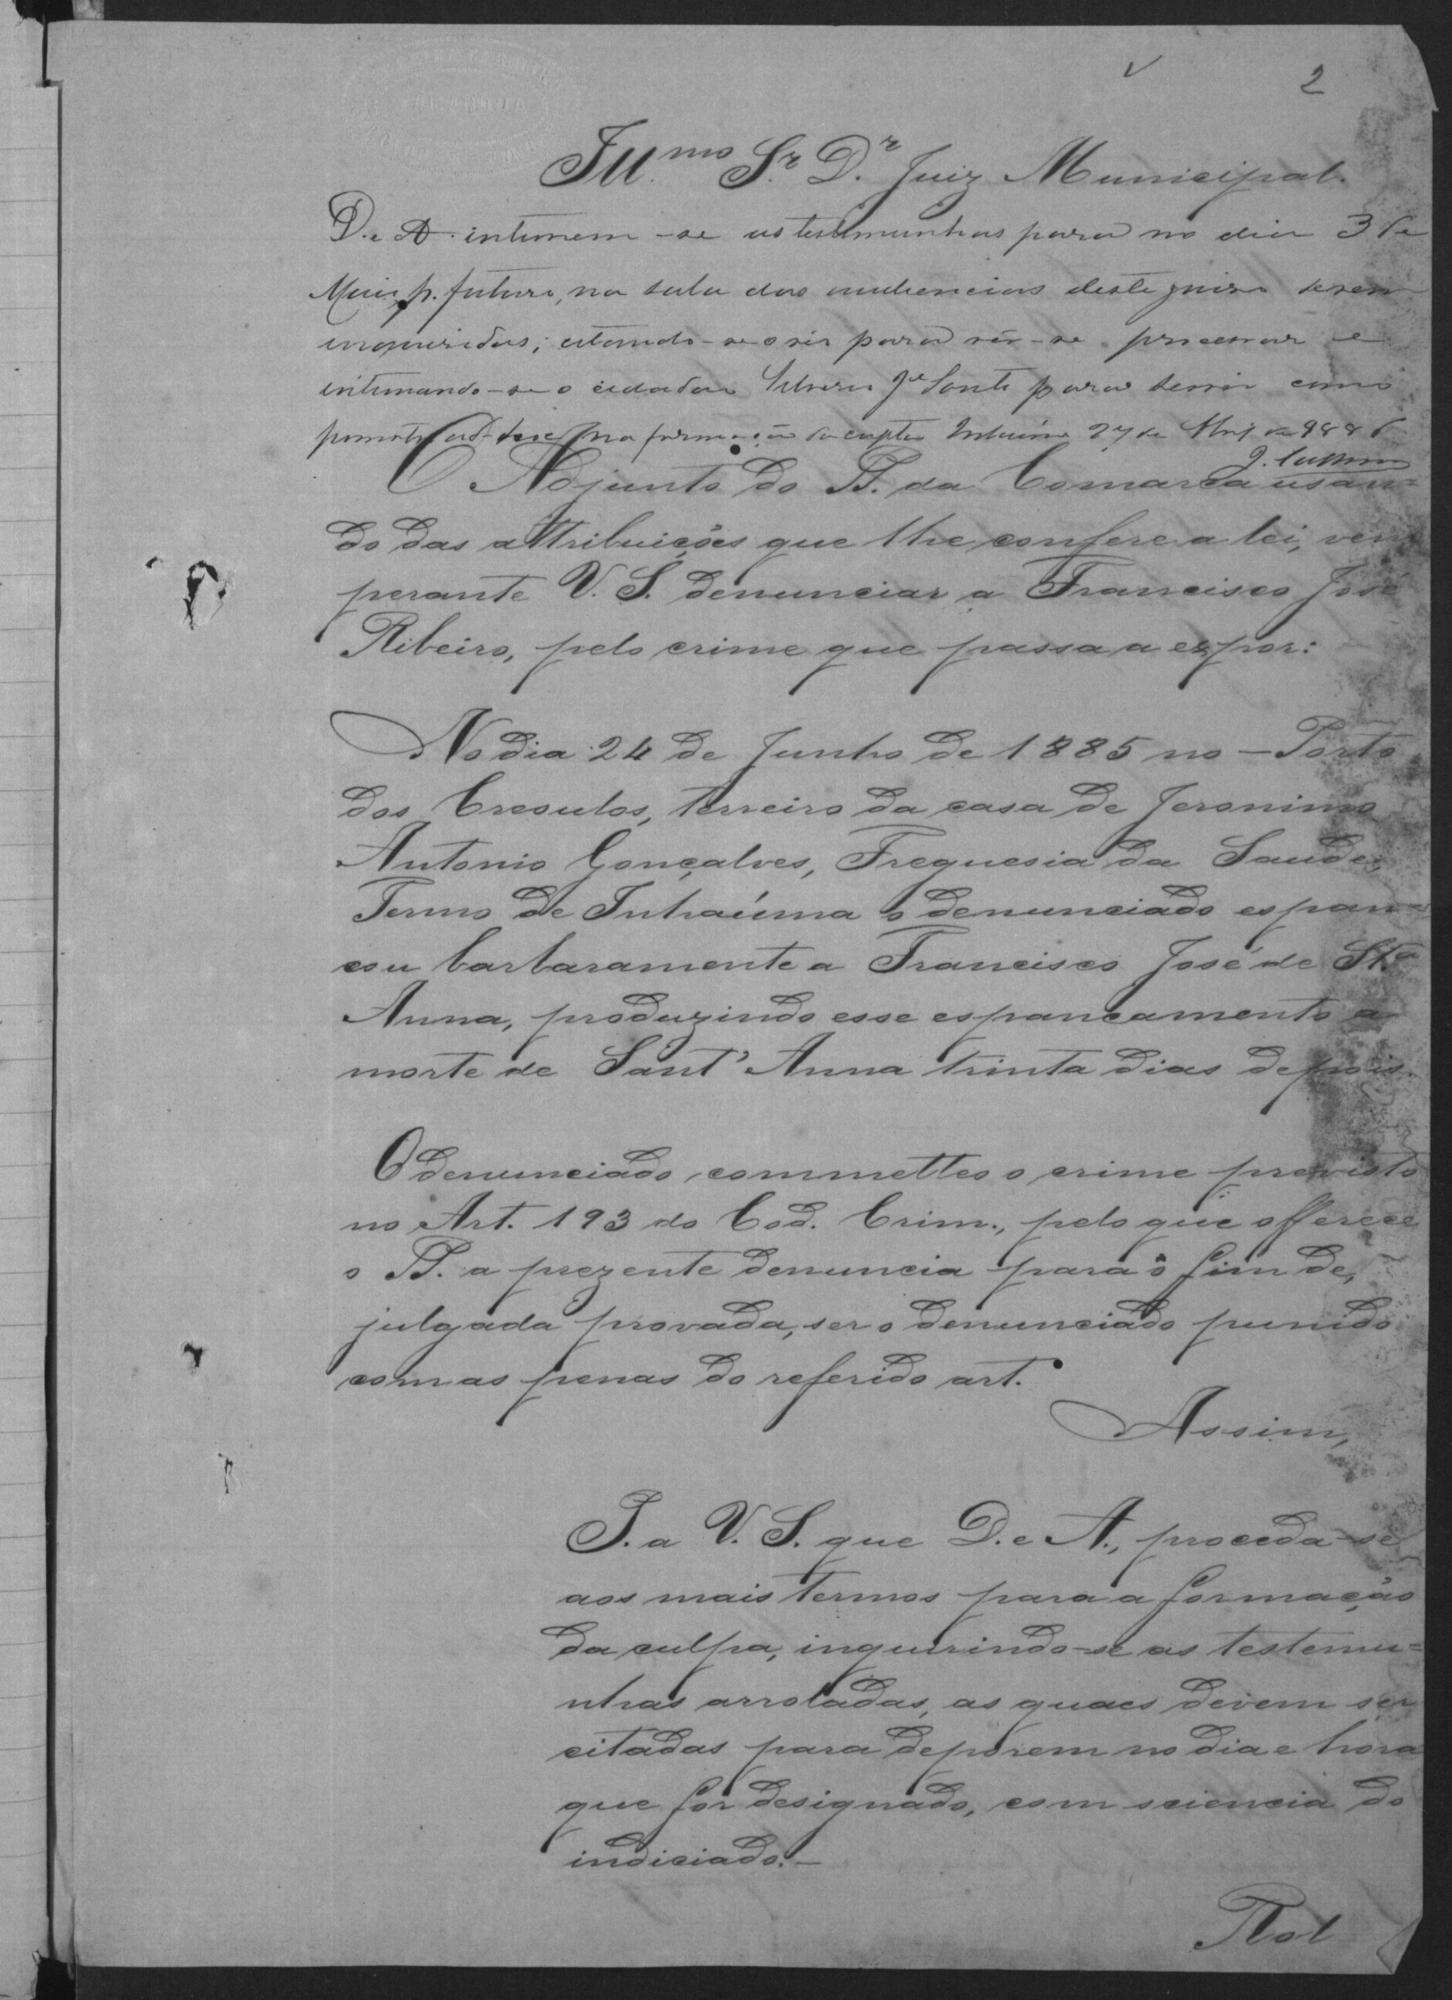 2
Ill.mo Sr. Dr. Juiz Municipal.
D. e A. intimem-se as testemunhas para no dia 3 de
Maio p. futuro, na sala das audiencias deste juizo serem
inqueridas; citando-se o réo para vêr-se processar e
intimando-se o cidadão para servir como
na formação da culpa Inhaúma 27 de Abril de 1886
O Adjunto do P. da Comarca usan=
do das attribuições que lhe confere a lei, vem
perante V. S. denunciar a Francisco José
Ribeiro, pelo crime que passa a expor:
No dia 24 de Junho de 1885 no - Porto
dos Creoulos, terreiro da casa de Jeronimo
Antonio Gonçalves, Freguesia da Saude,
Termo de Inhaúma o denunciado espan=
cou barbaramente a Francisco José de Sta
Anna, produzindo esse espancamento a
morte de Sant'Anna trinta dias depois.
O denunciado commetteo o crime previsto
no Art. 193 do Cod. Crim., pelo que offerece
o P. a prezente denuncia para o fim de,
julgada provada, ser o denunciado punido
com as penas do referido art.
Assim,
P. a V. S. que D. e A., proceda-se
aos mais termos para a formação
da culpa, inquirindo-se as testemu=
nhas arroladas, as quaes devem ser
citadas para deporem no dia e hora
que for designado, com sciencia do
indiciado.-
Rol